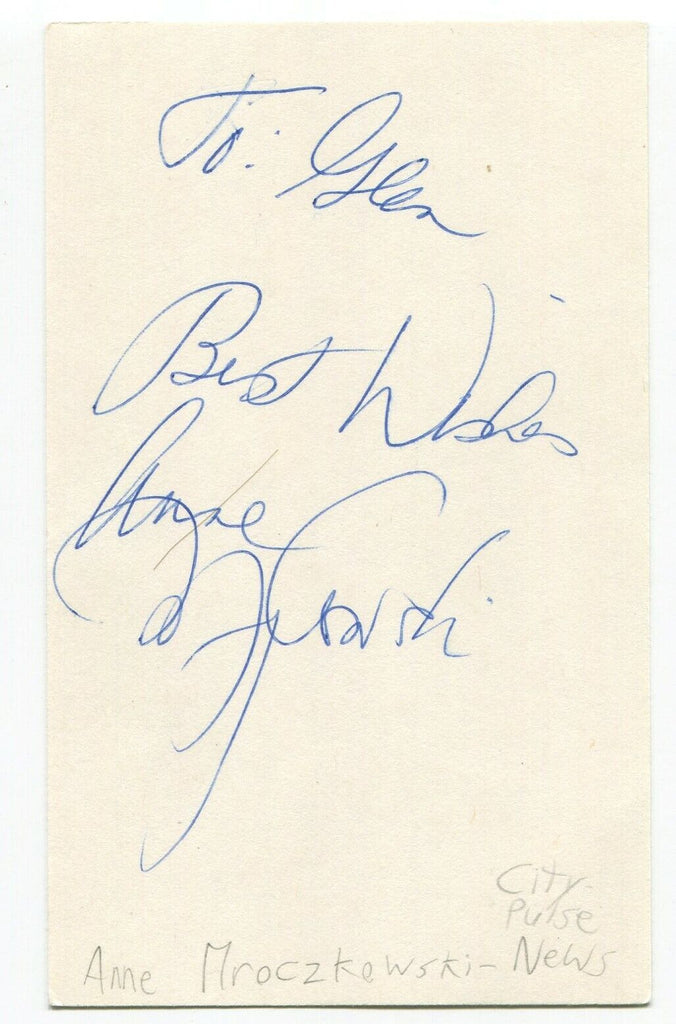 To: Glen
Best Wishes
Anne
Mroczkowski
City-
Pulse
Anne Mroczkowski- News